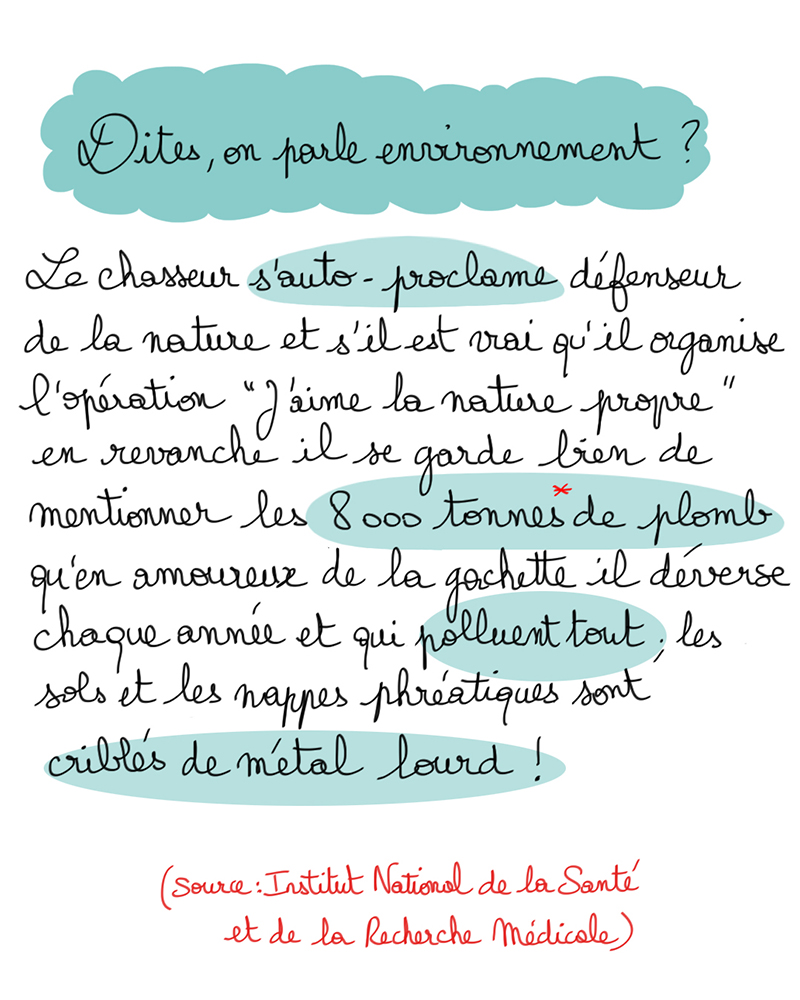 Dites, on parle environnement ?
Le chasseur s'auto-proclame défenseur
de la nature et s'il est vrai qu'il organise
l'opération "J'aime la nature propre"
en revanche il se garde bien de
mentionner les 8000 tonnes* de plomb
qu'en amoureux de la gachette il déverse
chaque année et qui polluent tout ; les
sols et les nappes phréatiques sont
criblés de métal lourd !
(Source : Institut National de la Santé
et de la Recherche Médicale)